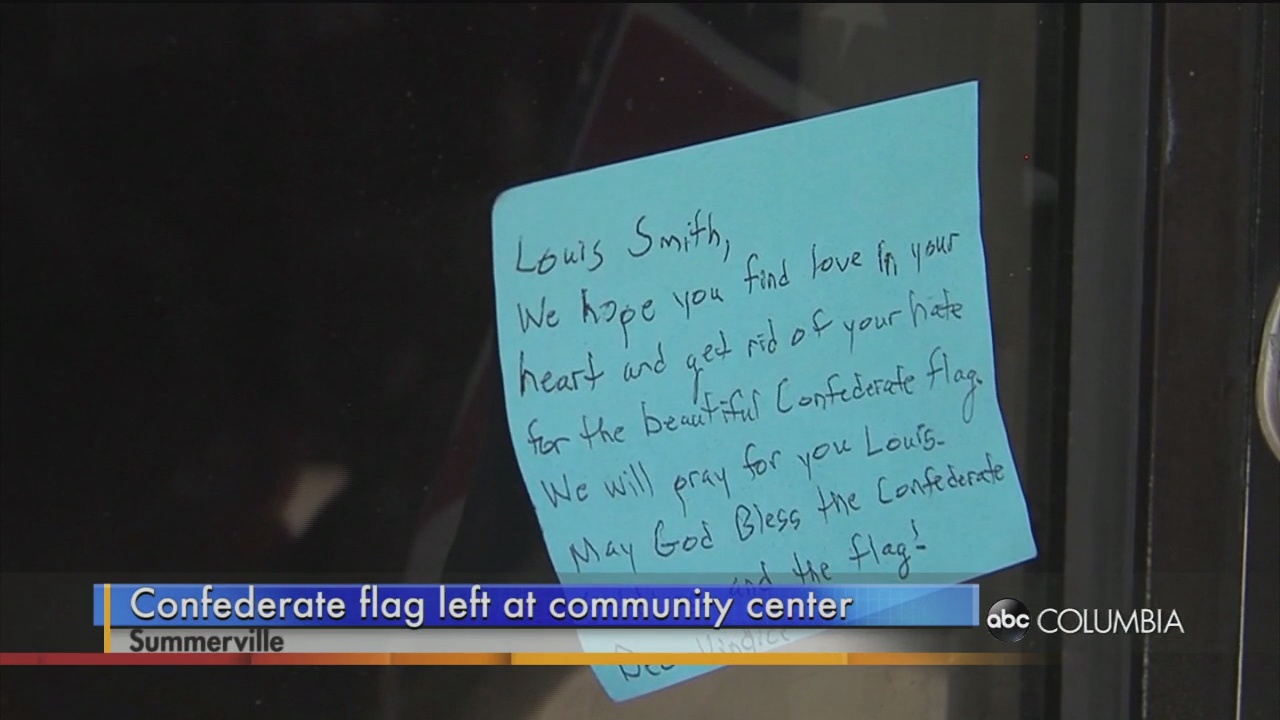 Louis Smith,
We hope you find love in your
heart and get rid of your hate
for the beautiful Confederate flag.
We will pray for you Louis.
May God Bless the Confederate
and the flag!
Deo Vindice
Confederate flag left at community center
Summerville
abc COLUMBIA